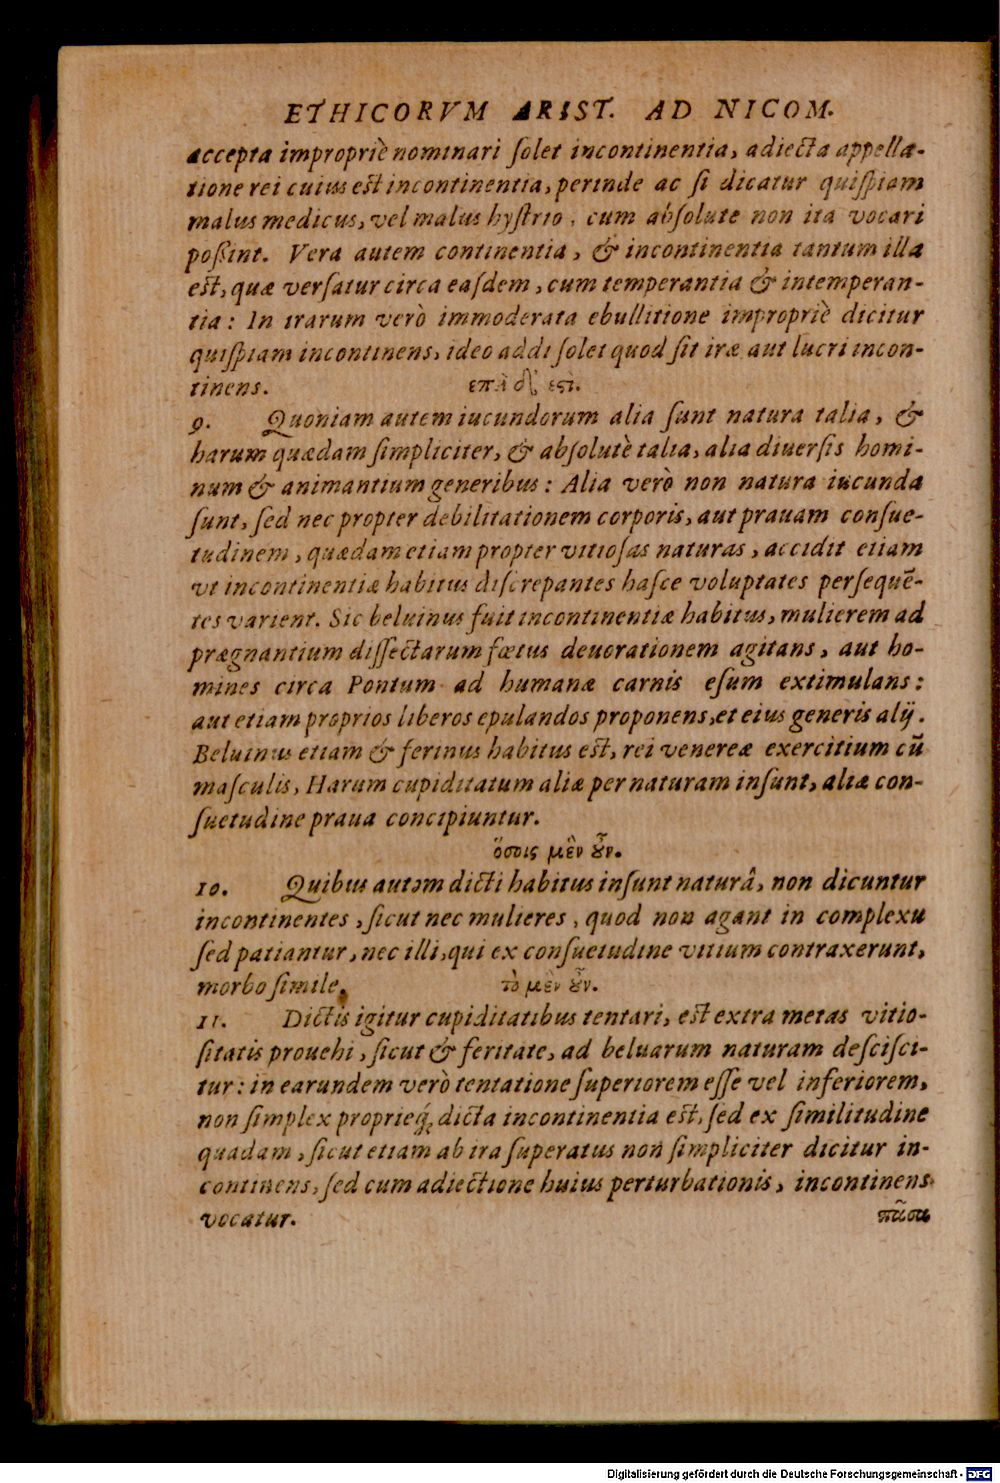 ETHICORVM ARIST. AD NICOM.
accepta impropriè nominari ſolet incontinentia, adiecta appella-
tione rei cuius eſt incontinentia, perinde ac ſi dicatur quiſpiam
malus medicus, vel malus hyſtrio, cum abſolute non ita vocari
poſſint. Vera autem continentia, & incontinentia tantum illa
eſt, quæ verſatur circa eaſdem, cum temperantia & intemperan-
tia: In irarum verò immoderata ebullitione impropriè dicitur
quiſpiam incontinens, ideo addi ſolet quod ſit iræ aut lucri incon-
tinens. επεὶ δ' εστὶ.
9. Quoniam autem iucundorum alia ſunt natura talia, &
harum quædam ſimpliciter, & abſolutè talia, alia diuerſis homi-
num & animantium generibus: Alia verò non natura iucunda
ſunt, ſed nec propter debilitationem corporis, aut prauam conſue-
tudinem, quædam etiam propter vitioſas naturas, accidit etiam
vt incontinentiæ habitus diſcrepantes haſce voluptates perſequē-
tes varient. Sic beluinus fuit incontinentiæ habitus, mulierem ad
prægnantium diſſectarum fœtus deuorationem agitans, aut ho-
mines circa Pontum ad humanæ carnis eſum extimulans:
aut etiam proprios liberos epulandos proponens, et eius generis alij.
Beluinus etiam & ferinus habitus eſt, rei venereæ exercitium cū
maſculis, Harum cupiditatum aliæ per naturam inſunt, aliæ con-
ſuetudine praua concipiuntur.
ὅσοις μὲν οὖν.
10. Quibus autem dicti habitus inſunt naturâ, non dicuntur
incontinentes, ſicut nec mulieres, quod non agant in complexu
ſed patiantur, nec illi, qui ex conſuetudine vitium contraxerunt,
morbo ſimile. τὸ μὲν οὖν.
11. Dictis igitur cupiditatibus tentari, eſt extra metas vitio-
ſitatis prouehi, ſicut & feritate, ad beluarum naturam deſciſci-
tur: in earundem verò tentatione ſuperiorem eſſe vel inferiorem,
non ſimplex proprieq́; dicta incontinentia eſt, ſed ex ſimilitudine
quadam, ſicut etiam ab ira ſuperatus non ſimpliciter dicitur in-
continens, ſed cum adiectione huius perturbationis, incontinens
vocatur. πᾶσα
Digitalisierung gefördert durch die Deutsche Forschungsgemeinschaft - DFG